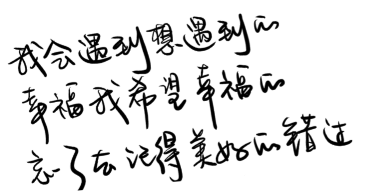 我会遇到想遇到的
幸福我希望幸福的
忘了去记得美好的错过